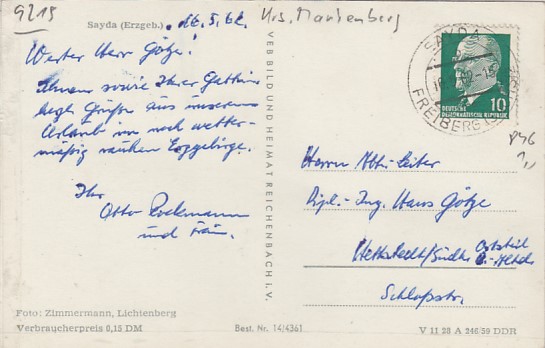 9215
Sayda (Erzgeb.) 16.5.62.
Krs. Marienberg
Werter Herr Götze!
Ihnen sowie Ihrer Gattin
herzl. Grüße aus unserem
Urlaub im noch wetter-
mäßig rauhen Erzgebirge.
Ihr
Otto
und Frau.
Foto: Zimmermann, Lichtenberg
Verbraucherpreis 0,15 DM
VEB BILD UND HEIMAT REICHENBACH I. V.
Best. Nr. 14/4361
SAYDA
FREIBERG
10
DEUTSCHE
DEMOKRATISCHE REPUBLIK
Herrn Abt.-Leiter
Dipl.-Ing. Hans Götze
Hettstedt/Südh. Ortsteil
Schloßstr.
V 11 28 A 246/59 DDR